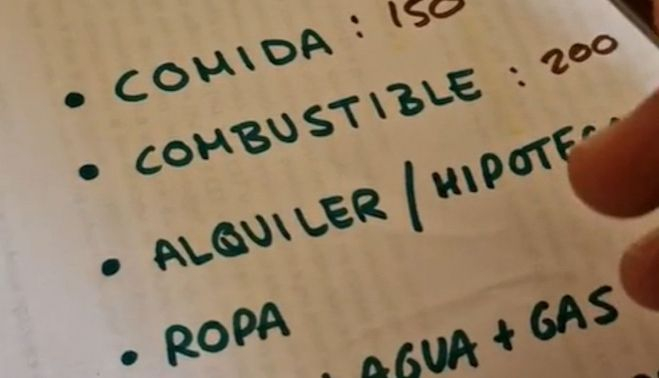 • COMIDA : 150
• COMBUSTIBLE : 200
• ALQUILER / HIPOTECA
• ROPA
AGUA + GAS